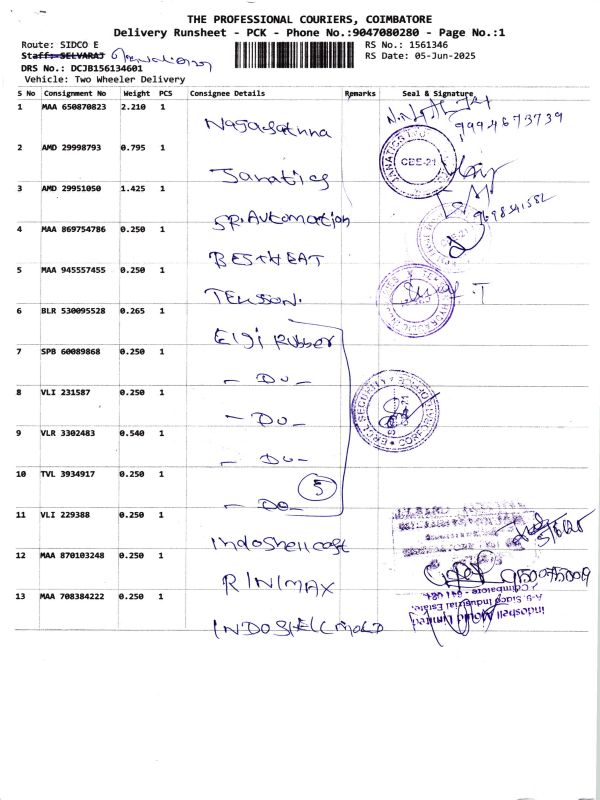 THE PROFESSIONAL COURIERS, COIMBATORE
Delivery Runsheet - PCK - Phone No.:9047080280 - Page No.:1
Route: SIDCO E
RS No.: 1561346
Staff: SELVARAJ
RS Date: 05-Jun-2025
DRS No.: DCJB156134601
Vehicle: Two Wheeler Delivery
S No Consignment No Weight PCS Consignee Details Remarks Seal & Signature
1 MAA 650870823 2.210 1
Nagarathna
9994673739
2 AMD 29998793 0.795 1
Janatics
JANATICS
CBE-21
3 AMD 29951050 1.425 1
SP. Automation
9698341582
4 MAA 869754786 0.250 1
BESTHEAT
CBE-21
5 MAA 945557455 0.250 1
TEKSON.
6 BLR 530095528 0.265 1
Elgi Rubber
7 SPB 60089868 0.250 1
- Do -
8 VLI 231587 0.250 1
- Do -
SECURITY
9 VLR 3302483 0.540 1
- Do -
10 TVL 3934917 0.250 1
5
- Do -
11 VLI 229388 0.250 1
Indoshell cast
12 MAA 870103248 0.250 1
RINIMAX
13 MAA 708384222 0.250 1
INDOSHELL MOLD
Indoshell Mould Limited
A-9, Sidco Industrial Estate,
Coimbatore - 641 021.